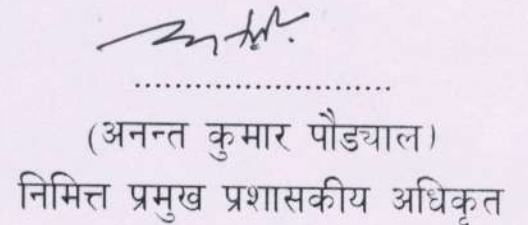 ............................
(अनन्त कुमार पौड्याल)
निमित्त प्रमुख प्रशासकीय अधिकृत